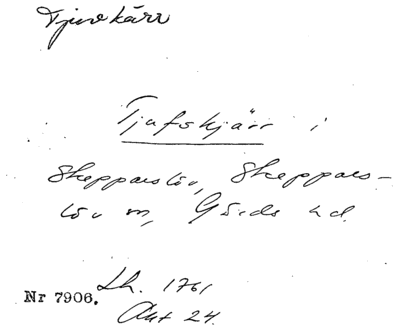 Tjuvkärr
Tjufskjärr i
Skepparslöv, Skeppars-
löv sn, Gärds hd.
Nr 7906. Lh. 1761
Akt 24.